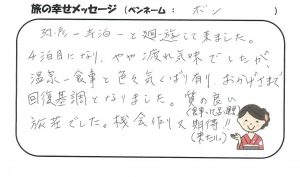 旅の幸せメッセージ (ペンネーム : ボン )
弥彦－寺泊－と廻遊して来ました。
4泊目になり、やや疲れ気味でしたが、
温泉－食事と色々気くばり有り、おかげさまで
回復基調となりました。質の良い
旅荘でした。機会作り又期待!!
(来たい。)